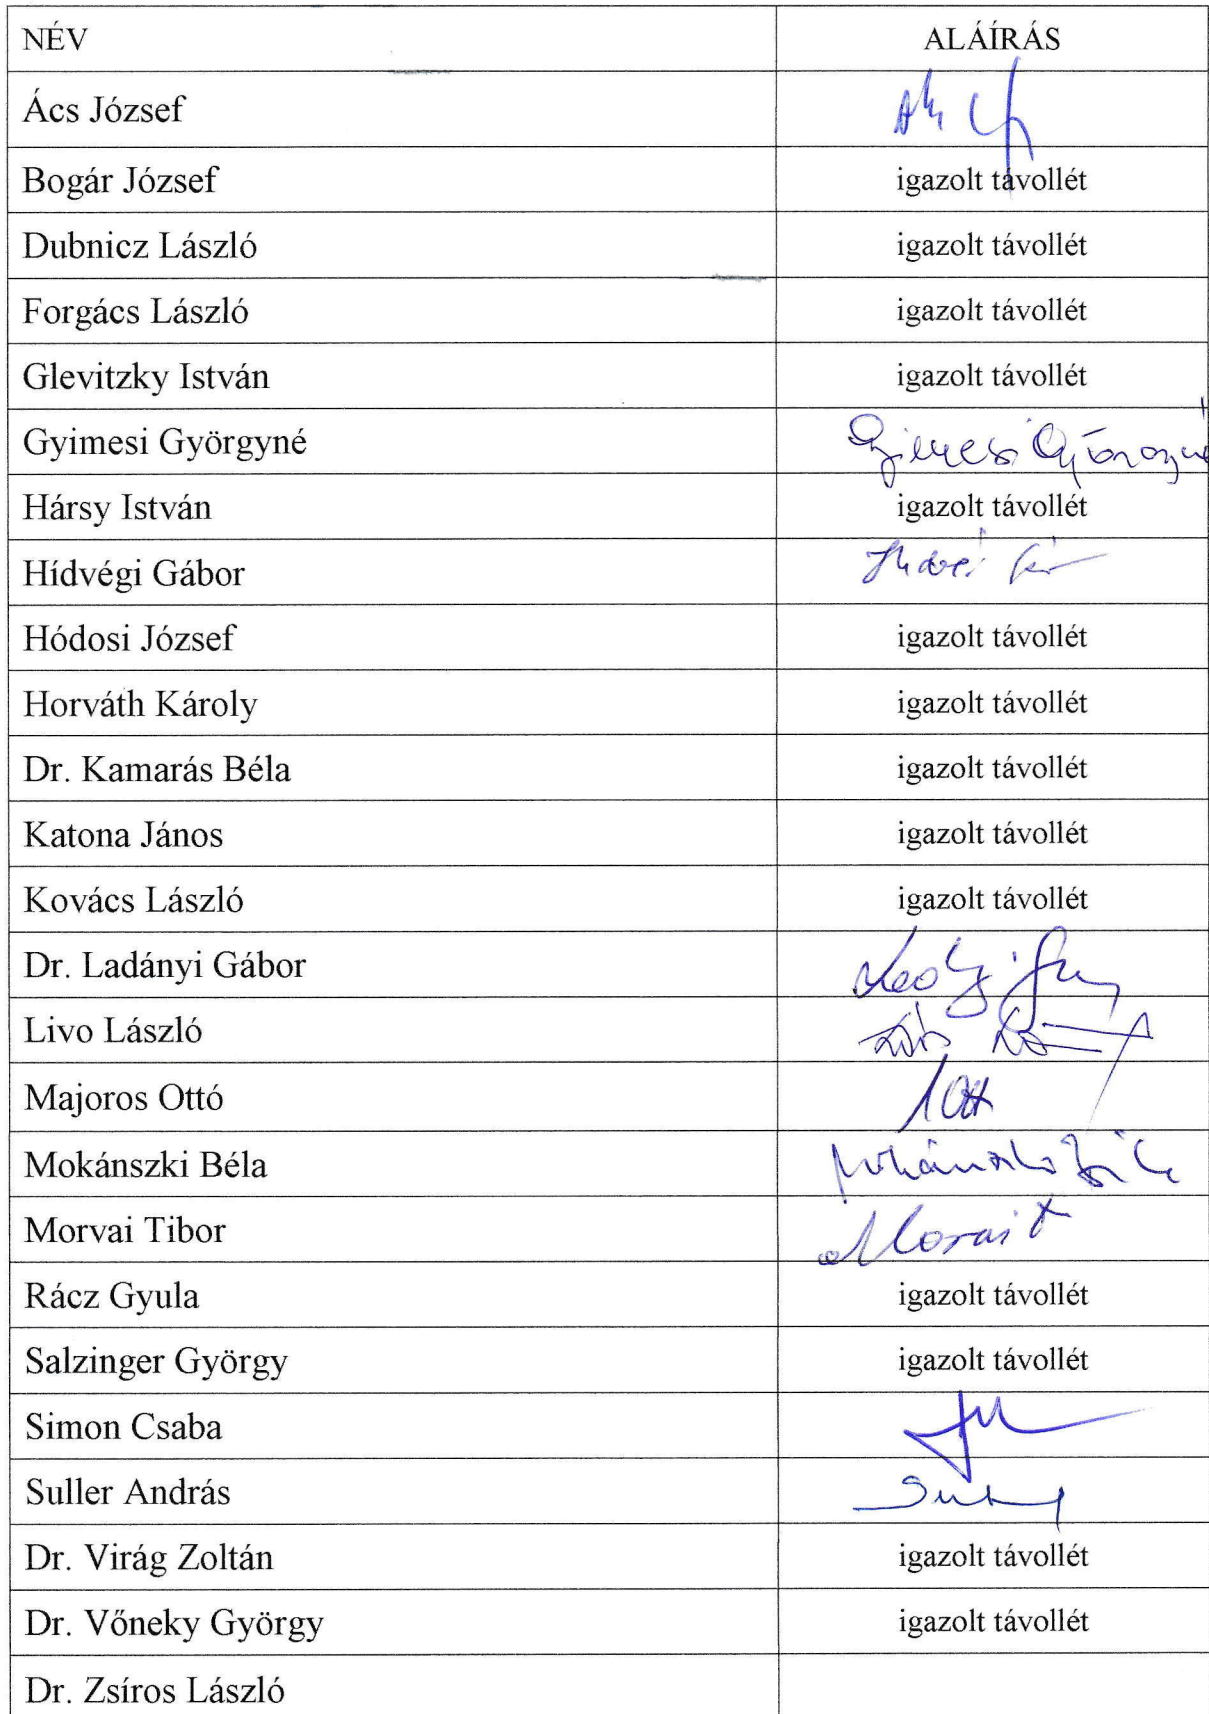 NÉV ALÁÍRÁS
Ács József
Bogár József igazolt távollét
Dubnicz László igazolt távollét
Forgács László igazolt távollét
Glevitzky István igazolt távollét
Gyimesi Györgyné Gyimesi Györgyné
Hársy István igazolt távollét
Hídvégi Gábor
Hódosi József igazolt távollét
Horváth Károly igazolt távollét
Dr. Kamarás Béla igazolt távollét
Katona János igazolt távollét
Kovács László igazolt távollét
Dr. Ladányi Gábor
Livo László
Majoros Ottó
Mokánszki Béla Mokánszki Béla
Morvai Tibor Morvai T
Rácz Gyula igazolt távollét
Salzinger György igazolt távollét
Simon Csaba
Suller András
Dr. Virág Zoltán igazolt távollét
Dr. Vőneky György igazolt távollét
Dr. Zsíros László